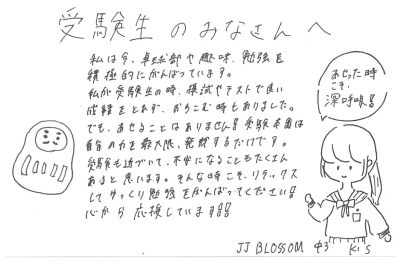 受験生のみなさんへ
私は今、卓球部や趣味、勉強を
積極的にがんばっています。
私が受験生の時、模試やテストで良い
成績をとれず、おちこむ時もありました。
でも、あせることはありません!!受験本番は
自分の力を最大限、発揮するだけです。
受験も近づいて、不安になることもたくさん
あると思います。そんな時こそ、リラックス
してゆっくり勉強をがんばってください!
心から応援しています!!
あせった時
こそ、
深呼吸!!
JJ BLOSSOM 中3 K.S